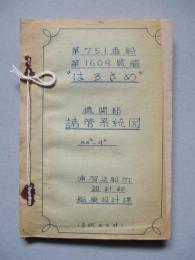 第751番船
第1609號艦
"はるさめ"
機関部
諸管系統図
浦賀造船所
設計部
船装設計課